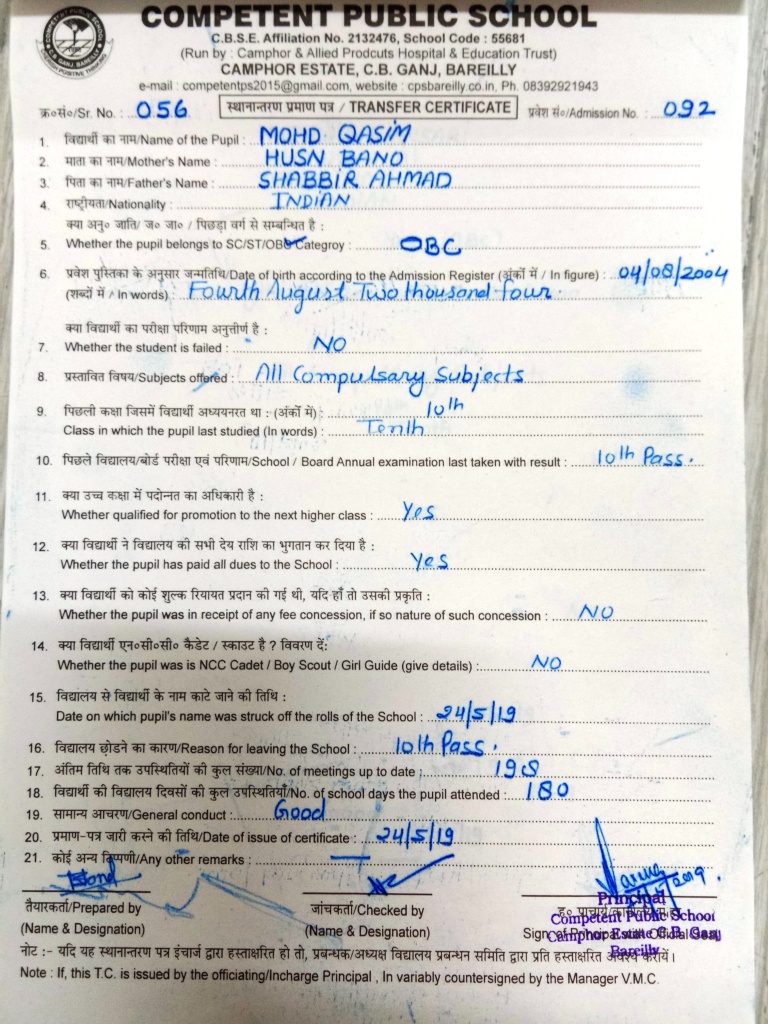 COMPETENT PUBLIC SCHOOL
C.B.S.E. Affiliation No. 2132476, School Code : 55681
(Run by : Camphor & Allied Prodcuts Hospital & Education Trust)
CAMPHOR ESTATE, C.B. GANJ, BAREILLY
e-mail : competentps2015@gmail.com, website : cpsbareilly.co.in, Ph. 08392921943
क्र०सं०/Sr. No. : 056 स्थानान्तरण प्रमाण पत्र / TRANSFER CERTIFICATE प्रवेश सं०/Admission No. : 092
1. विद्यार्थी का नाम/Name of the Pupil : MOHD QASIM
2. माता का नाम/Mother's Name : HUSN BANO
3. पिता का नाम/Father's Name : SHABBIR AHMAD
4. राष्ट्रीयता/Nationality : INDIAN
क्या अनु० जाति/ ज० जा० / पिछड़ा वर्ग से सम्बन्धित है :
5. Whether the pupil belongs to SC/ST/OBC Categroy : OBC
6. प्रवेश पुस्तिका के अनुसार जन्मतिथि/Date of birth according to the Admission Register (अंकों में / In figure) : 04/08/2004
(शब्दों में / In words) : Fourth August Two thousand four
क्या विद्यार्थी का परीक्षा परिणाम अनुत्तीर्ण है :
7. Whether the student is failed : NO
8. प्रस्तावित विषय/Subjects offered : All Compulsary Subjects
9. पिछली कक्षा जिसमें विद्यार्थी अध्ययनरत था : (अंकों में) 10th
Class in which the pupil last studied (In words) : Tenth
10. पिछले विद्यालय/बोर्ड परीक्षा एवं परिणाम/School / Board Annual examination last taken with result : 10th Pass.
11. क्या उच्च कक्षा में पदोन्नत का अधिकारी है :
Whether qualified for promotion to the next higher class : Yes
12. क्या विद्यार्थी ने विद्यालय की सभी देय राशि का भुगतान कर दिया है :
Whether the pupil has paid all dues to the School : Yes
13. क्या विद्यार्थी को कोई शुल्क रियायत प्रदान की गई थी, यदि हाँ तो उसकी प्रकृति :
Whether the pupil was in receipt of any fee concession, if so nature of such concession : NO
14. क्या विद्यार्थी एन०सी०सी० कैडेट / स्काउट है ? विवरण दें:
Whether the pupil was is NCC Cadet / Boy Scout / Girl Guide (give details) : NO
15. विद्यालय से विद्यार्थी के नाम काटे जाने की तिथि :
Date on which pupil's name was struck off the rolls of the School : 24/5/19
16. विद्यालय छोडने का कारण/Reason for leaving the School : 10th Pass.
17. अंतिम तिथि तक उपस्थितियों की कुल संख्या/No. of meetings up to date : 198
18. विद्यार्थी की विद्यालय दिवसों की कुल उपस्थितियाँ/No. of school days the pupil attended : 180
19. सामान्य आचरण/General conduct : Good
20. प्रमाण-पत्र जारी करने की तिथि/Date of issue of certificate : 24/5/19
21. कोई अन्य टिप्पणी/Any other remarks :
तैयारकर्ता/Prepared by जांचकर्ता/Checked by Principal
(Name & Designation) (Name & Designation) Competent Public School
Camphor Estate C.B. Ganj
Bareilly
नोट :- यदि यह स्थानान्तरण पत्र इंचार्ज द्वारा हस्ताक्षरित हो तो, प्रबन्धक/अध्यक्ष विद्यालय प्रबन्धन समिति द्वारा प्रति हस्ताक्षरित अवश्य करायें।
Note : If, this T.C. is issued by the officiating/Incharge Principal , In variably countersigned by the Manager V.M.C.